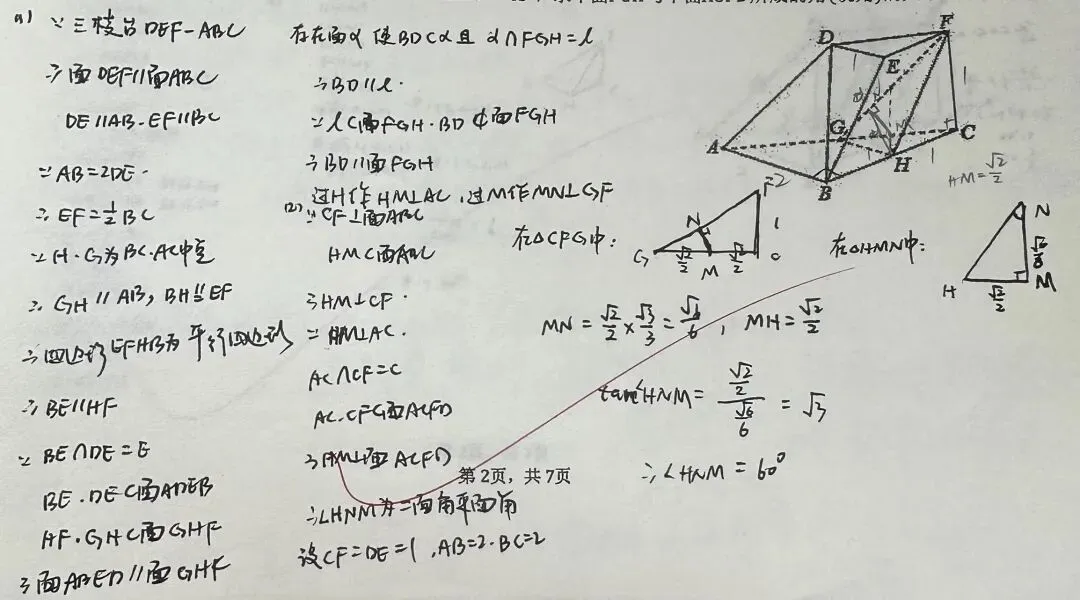 (1) ∵三棱台DEF-ABC
∴面DEF//面ABC
DE//AB.EF//BC
∵AB=2DE.
∴EF=½BC
∵H.G为BC.AC中点
∴GH//AB, BH≝EF
∴四边形EFHB为平行四边形
∴BE//HF
∵BE∩DE=E
BE.DE⊂面ADEB
HF.GH⊂面GHF
∴面ABED//面GHF
存在面α使BD⊂α且α∩FGH=l
∴BD//l.
∵l⊂面FGH.BD⊄面FGH
∴BD//面FGH
过H作HM⊥AC,过M作MN⊥GF
(2)∵CF⊥面ABC
HM⊂面ABC
∴HM⊥CF.
∵HM⊥AC.
AC∩CF=C
AC.CF⊂面ACFD
∴HM⊥面ACFD
第2页,共7页
∴∠HNM为二面角平面角
设CF=DE=1,AB=2.BC=2
D
F
E
G
A
B
H
C
1
1
1
HM=√2/2
在△CFG中:
F
N
G
M
C
1
√2/2
√2/2
在△HMN中:
N
H
M
√6/6
√2/2
MN=√2/2×√3/3=√6/6, MH=√2/2
tan∠HNM=(√2/2)/(√6/6)=√3
∴∠HNM=60°